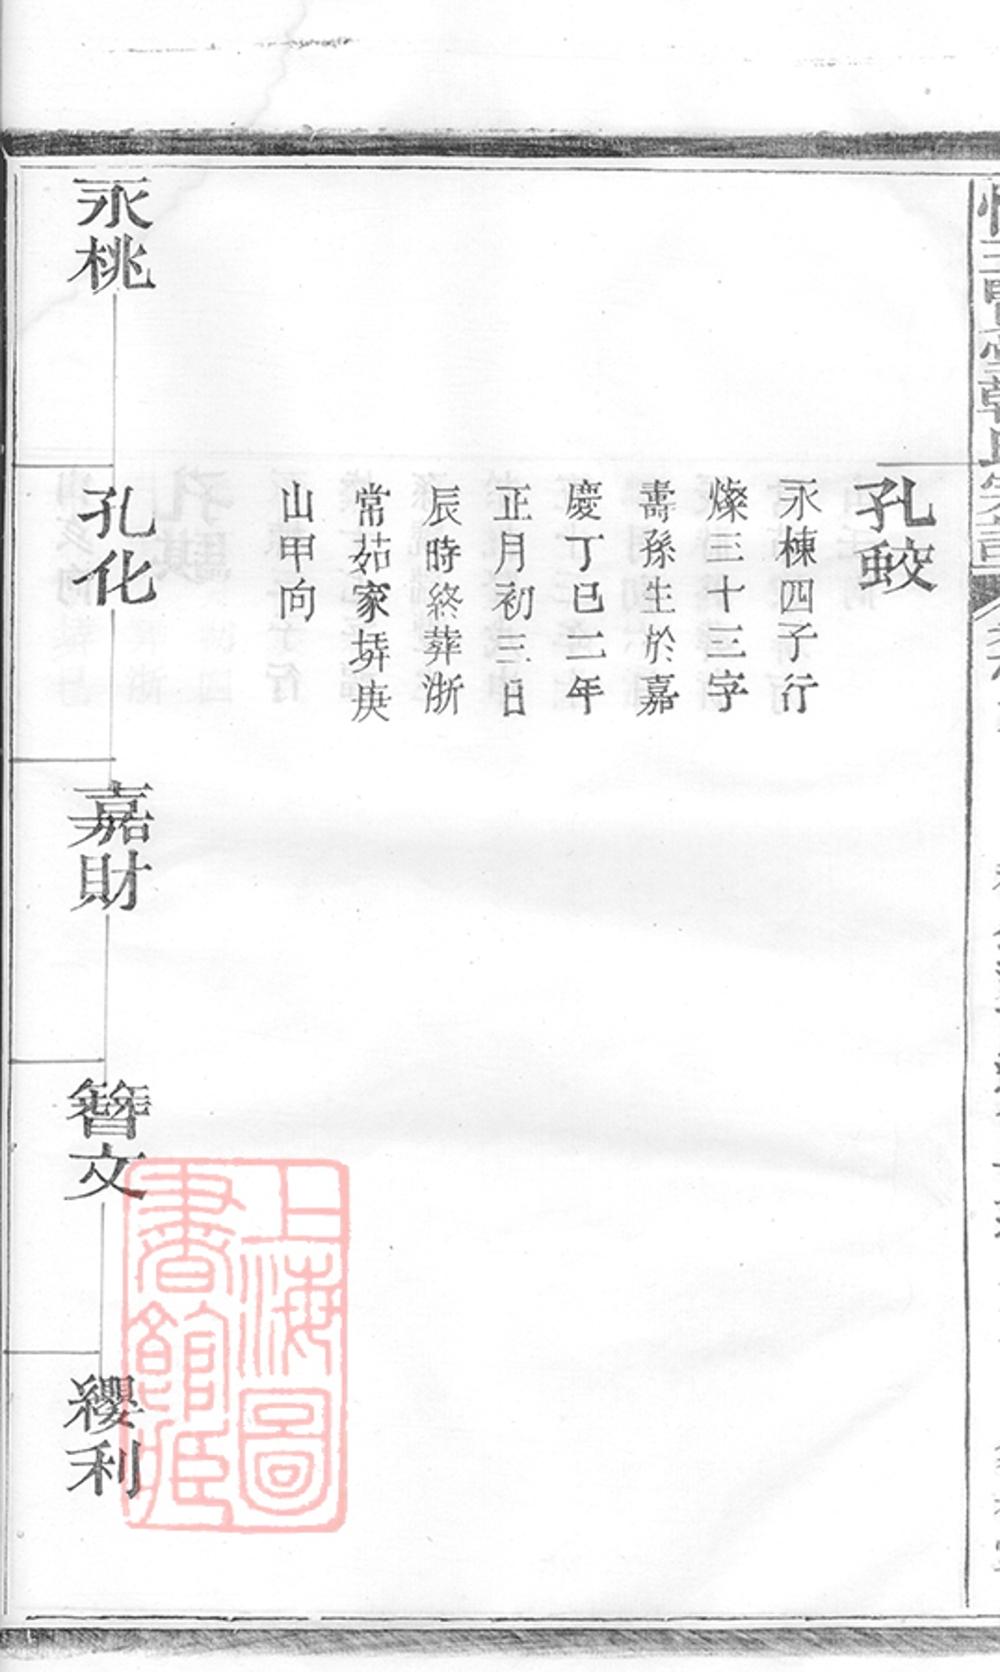 孔蛟
永棟四子行
燦三十三字
壽孫生於嘉
慶丁巳二年
正月初三日
辰時終葬浙
常茹家塝庚
山甲向
永桃
孔化
嘉財
簪文
纓利
上海圖
書館藏